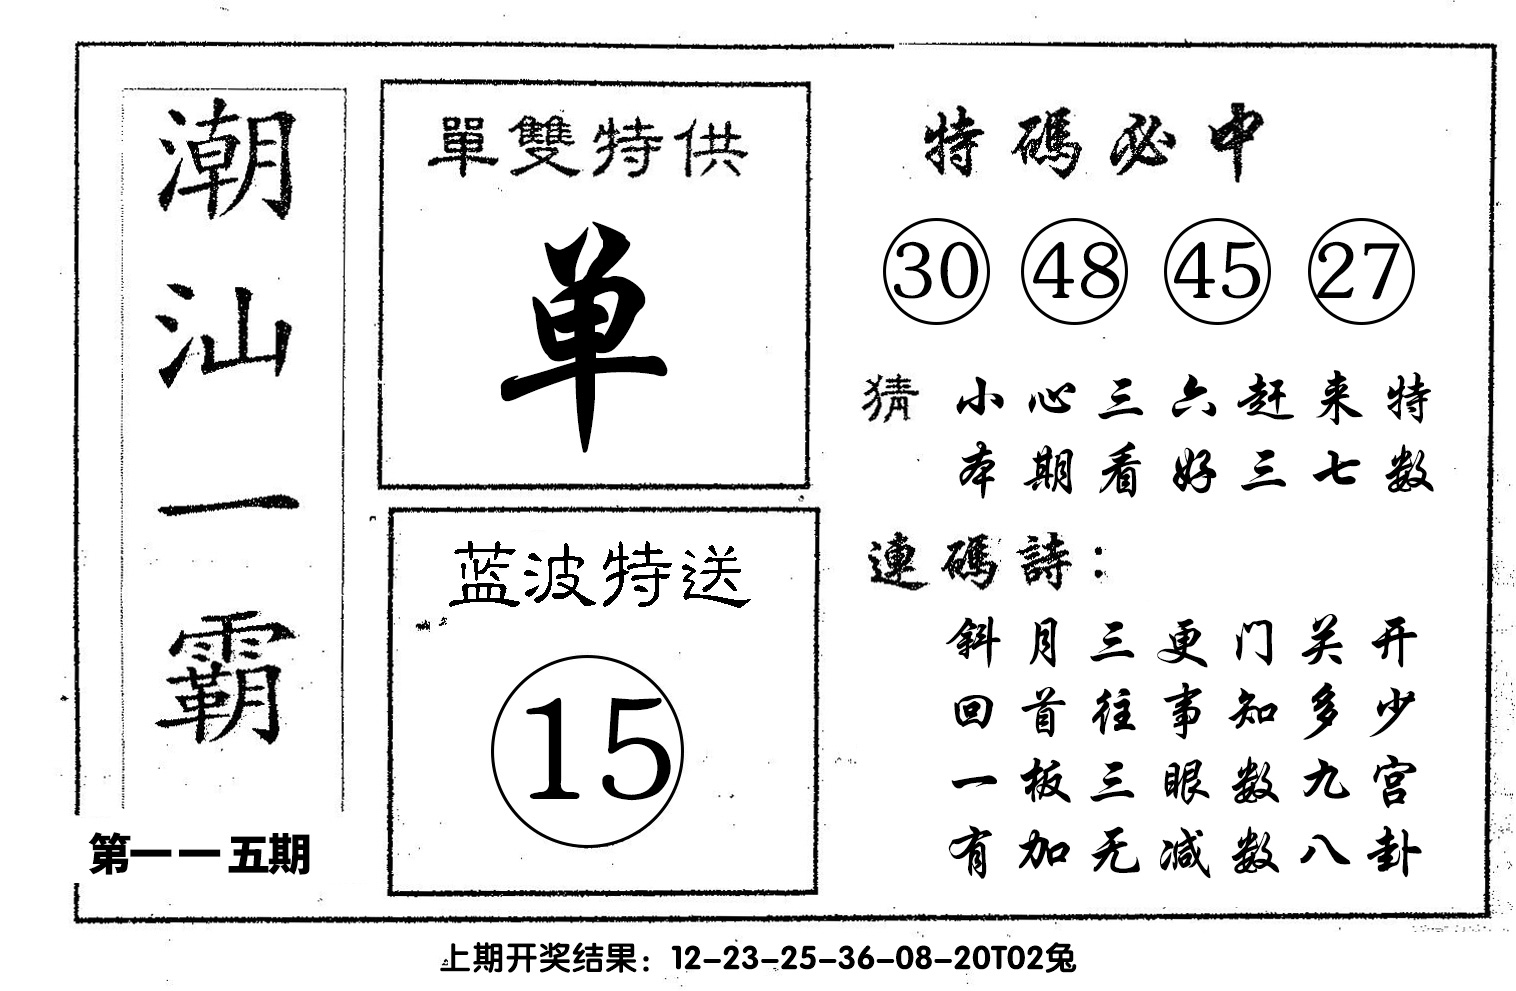 潮汕一霸
第一一五期
單雙特供
单
蓝波特送
15
特碼必中
30 48 45 27
猜 小心三六赶来特
本期看好三七数
連碼詩：
斜月三更门关开
回首往事知多少
一板三眼数九宫
有加无减数八卦
上期开奖结果：12-23-25-36-08-20T02兔